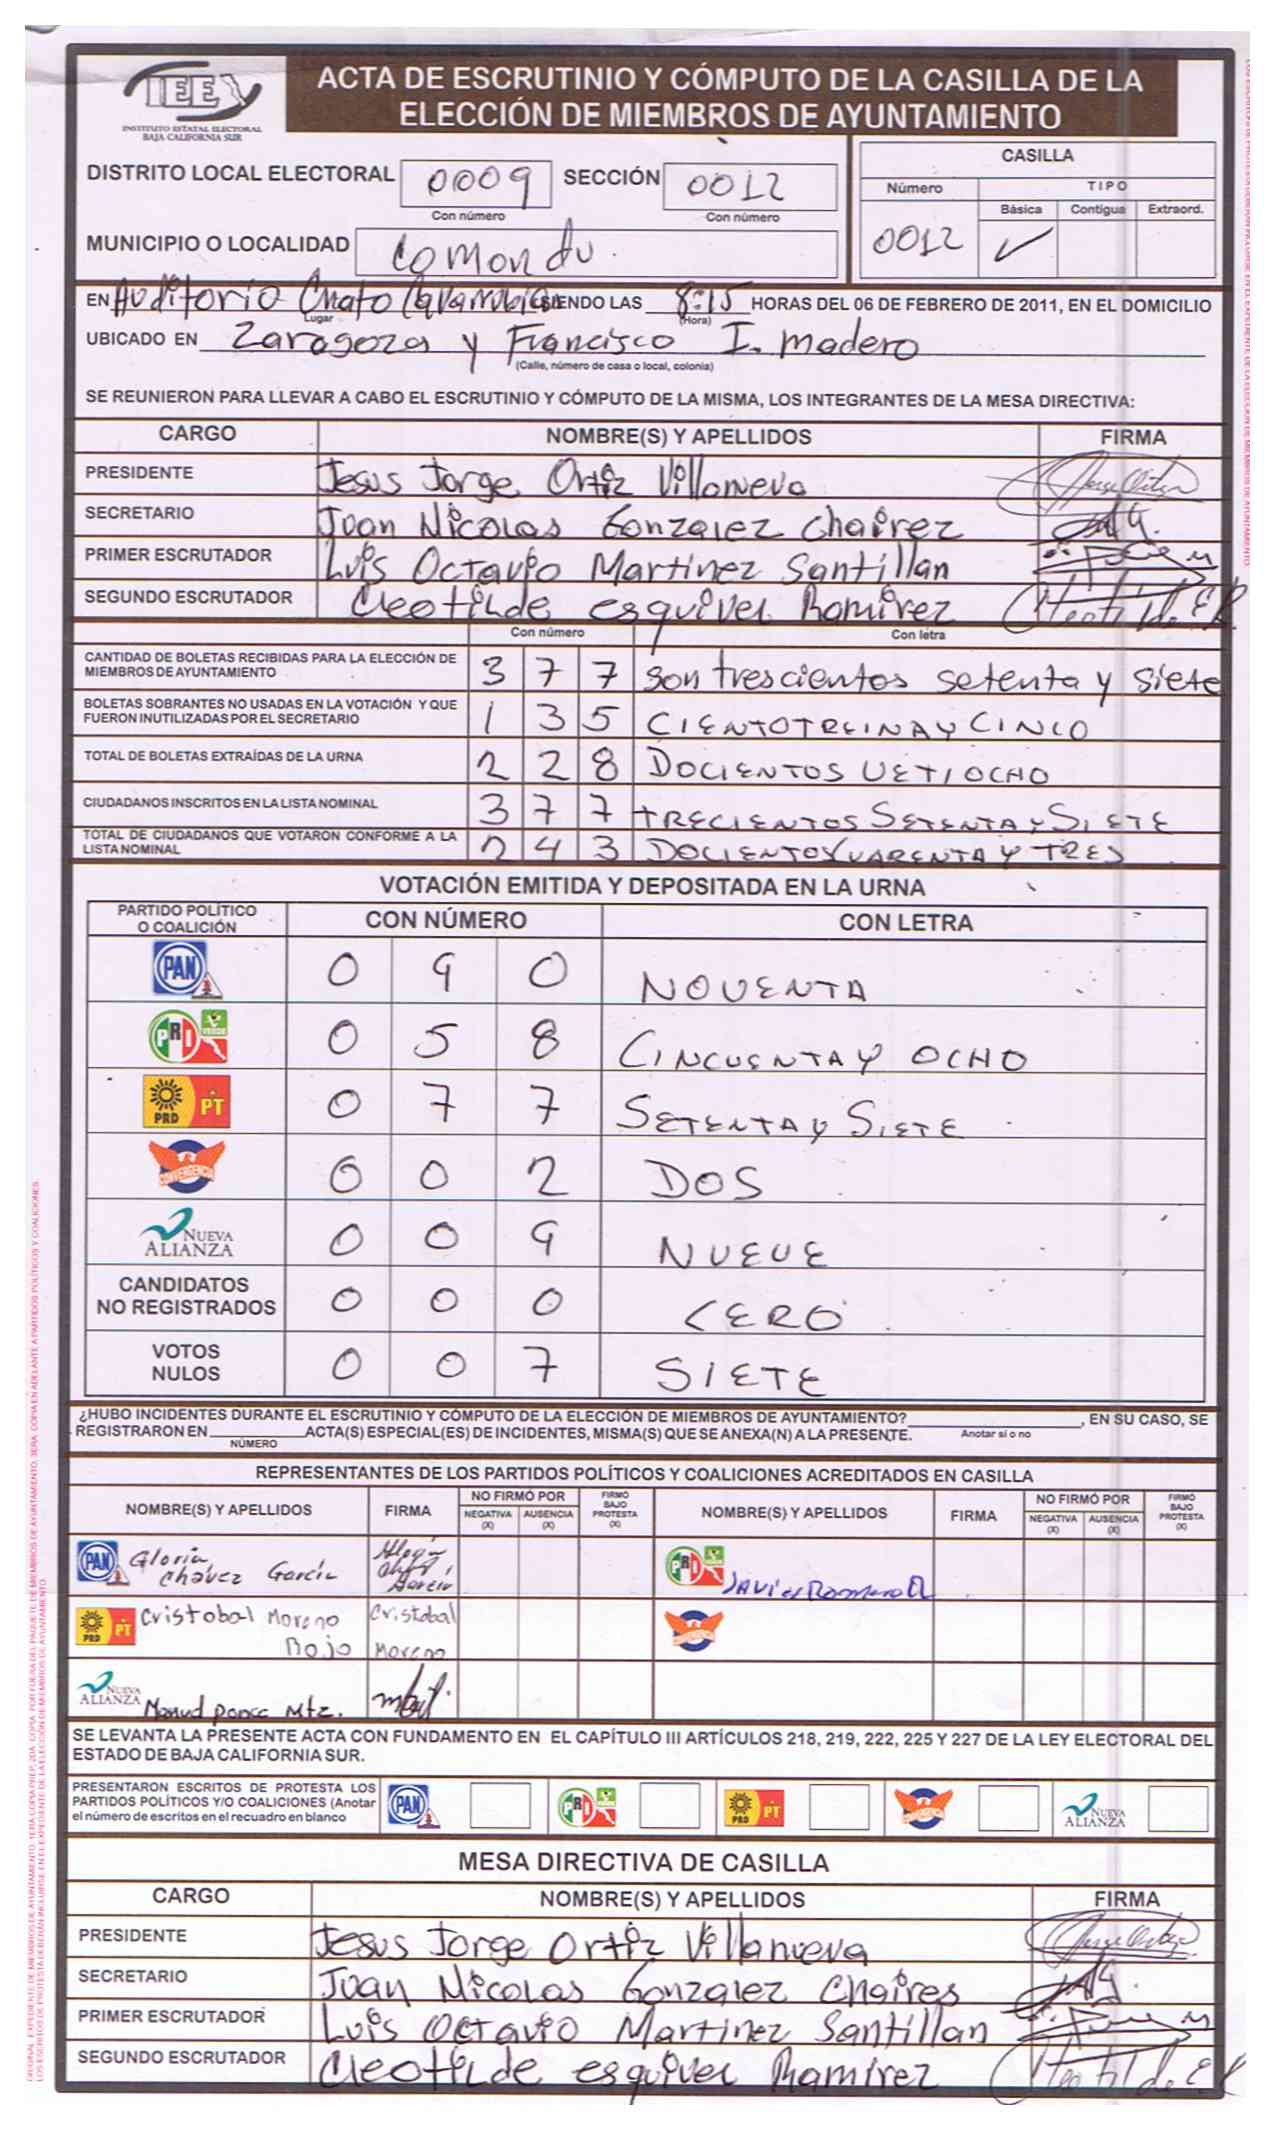 IEE
INSTITUTO ESTATAL ELECTORAL
BAJA CALIFORNIA SUR
ACTA DE ESCRUTINIO Y CÓMPUTO DE LA CASILLA DE LA
ELECCIÓN DE MIEMBROS DE AYUNTAMIENTO
DISTRITO LOCAL ELECTORAL 0009 SECCIÓN 0012
Con número Con número
MUNICIPIO O LOCALIDAD Comondu.
CASILLA
Número TIPO
Básica Contigua Extraord.
0012 ✓
EN Auditorio Chato Covarrubias SIENDO LAS 8:15 HORAS DEL 06 DE FEBRERO DE 2011, EN EL DOMICILIO
Lugar (Hora)
UBICADO EN Zaragoza y Francisco I. Madero
(Calle, número de casa o local, colonia)
SE REUNIERON PARA LLEVAR A CABO EL ESCRUTINIO Y CÓMPUTO DE LA MISMA, LOS INTEGRANTES DE LA MESA DIRECTIVA:
CARGO NOMBRE(S) Y APELLIDOS FIRMA
PRESIDENTE Jesus Jorge Ortiz Villanueva
SECRETARIO Juan Nicolas Gonzalez Chairez
PRIMER ESCRUTADOR Luis Octavio Martinez Santillan
SEGUNDO ESCRUTADOR Cleotilde esquivel Ramirez Cleotilde E.R.
Con número Con letra
CANTIDAD DE BOLETAS RECIBIDAS PARA LA ELECCIÓN DE
MIEMBROS DE AYUNTAMIENTO 3 7 7 son trescientos setenta y siete
BOLETAS SOBRANTES NO USADAS EN LA VOTACIÓN Y QUE
FUERON INUTILIZADAS POR EL SECRETARIO 1 3 5 CIENTOTREINAY CINCO
TOTAL DE BOLETAS EXTRAÍDAS DE LA URNA 2 2 8 DOCIENTOS VETIOCHO
CIUDADANOS INSCRITOS EN LA LISTA NOMINAL 3 7 7 TRECIENTOS SETENTA Y SIETE
TOTAL DE CIUDADANOS QUE VOTARON CONFORME A LA
LISTA NOMINAL 2 4 3 DOCIENTOS CUARENTA Y TRES
VOTACIÓN EMITIDA Y DEPOSITADA EN LA URNA
PARTIDO POLÍTICO
O COALICIÓN CON NÚMERO CON LETRA
PAN 0 9 0 NOVENTA
PRI VERDE 0 5 8 CINCUENTA Y OCHO
PRD PT 0 7 7 SETENTA Y SIETE
CONVERGENCIA 0 0 2 DOS
NUEVA
ALIANZA 0 0 9 NUEVE
CANDIDATOS
NO REGISTRADOS 0 0 0 CERO
VOTOS
NULOS 0 0 7 SIETE
¿HUBO INCIDENTES DURANTE EL ESCRUTINIO Y CÓMPUTO DE LA ELECCIÓN DE MIEMBROS DE AYUNTAMIENTO? , EN SU CASO, SE
REGISTRARON EN ACTA(S) ESPECIAL(ES) DE INCIDENTES, MISMA(S) QUE SE ANEXA(N) A LA PRESENTE. Anotar sí o no
NÚMERO
REPRESENTANTES DE LOS PARTIDOS POLÍTICOS Y COALICIONES ACREDITADOS EN CASILLA
NOMBRE(S) Y APELLIDOS FIRMA NO FIRMÓ POR NEGATIVA (X) AUSENCIA (X) FIRMÓ BAJO PROTESTA (X) NOMBRE(S) Y APELLIDOS FIRMA NO FIRMÓ POR NEGATIVA (X) AUSENCIA (X) FIRMÓ BAJO PROTESTA (X)
PAN Gloria
Chávez García
PRI VERDE Javier Romero
PRD PT Cristobal Moreno Cristobal
Rojo Moreno
CONVERGENCIA
NUEVA
ALIANZA Manuel Ponce Mtz.
SE LEVANTA LA PRESENTE ACTA CON FUNDAMENTO EN EL CAPÍTULO III ARTÍCULOS 218, 219, 222, 225 Y 227 DE LA LEY ELECTORAL DEL
ESTADO DE BAJA CALIFORNIA SUR.
PRESENTARON ESCRITOS DE PROTESTA LOS
PARTIDOS POLÍTICOS Y/O COALICIONES (Anotar
el número de escritos en el recuadro en blanco
PAN PRI VERDE PRD PT CONVERGENCIA NUEVA ALIANZA
MESA DIRECTIVA DE CASILLA
CARGO NOMBRE(S) Y APELLIDOS FIRMA
PRESIDENTE Jesus Jorge Ortiz Villanueva
SECRETARIO Juan Nicolas Gonzalez Chaires
PRIMER ESCRUTADOR Luis Octavio Martinez Santillan
SEGUNDO ESCRUTADOR Cleotilde esquivel Ramirez Cleotilde E.R